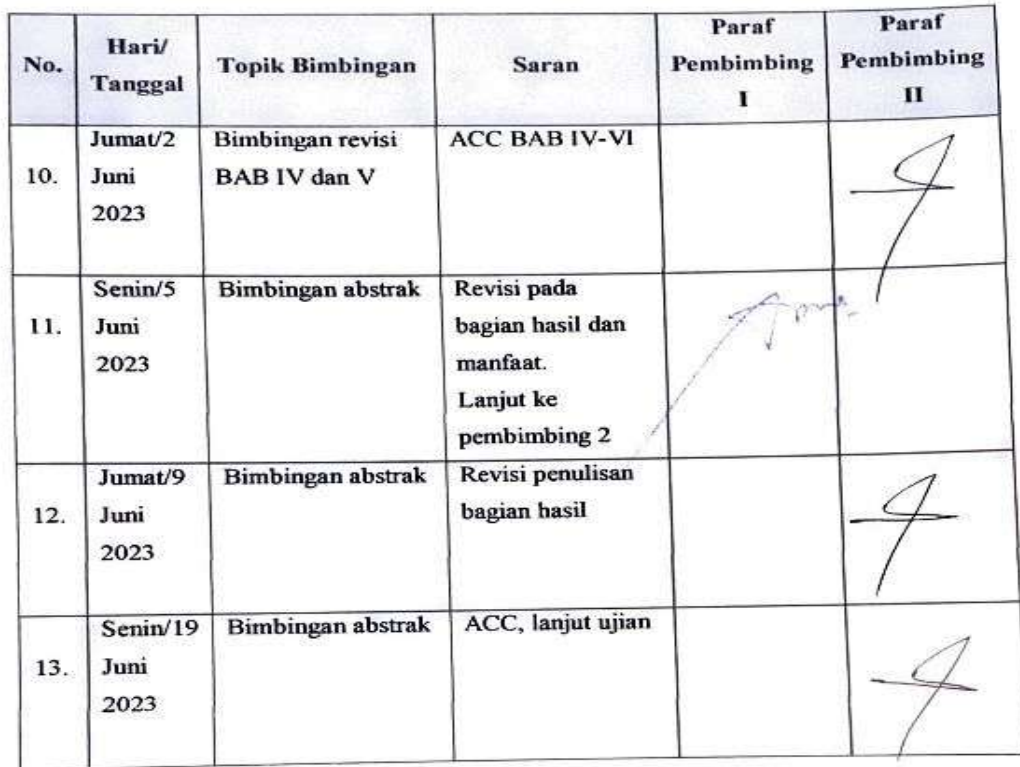 No.
Hari/
Tanggal
Topik Bimbingan
Saran
Paraf
Pembimbing
I
Paraf
Pembimbing
II
10.
Jumat/2
Juni
2023
Bimbingan revisi
BAB IV dan V
ACC BAB IV-VI
11.
Senin/5
Juni
2023
Bimbingan abstrak
Revisi pada
bagian hasil dan
manfaat.
Lanjut ke
pembimbing 2
12.
Jumat/9
Juni
2023
Bimbingan abstrak
Revisi penulisan
bagian hasil
13.
Senin/19
Juni
2023
Bimbingan abstrak
ACC, lanjut ujian